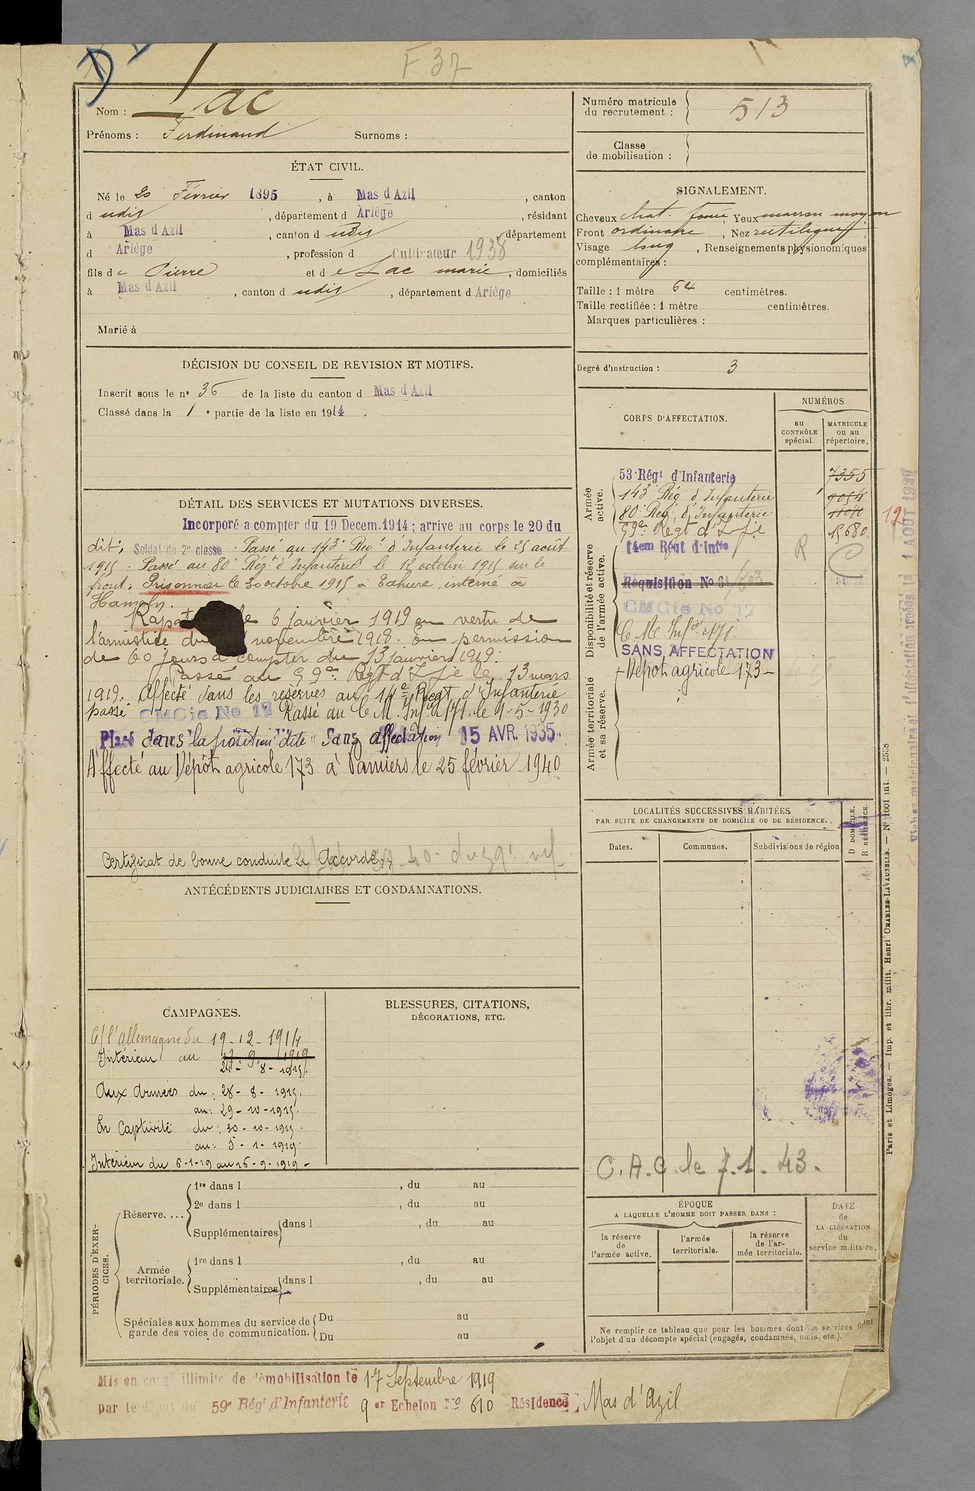 F 37
Nom : Lac
Prénoms : Ferdinand Surnoms :
Numéro matricule du recrutement : 513
Classe de mobilisation :
ÉTAT CIVIL.
Né le 20 Février 1895, à Mas d'Azil, canton
d udit, département d Ariège, résidant
à Mas d'Azil, canton d udit département
d Ariège, profession d Cultivateur 1938
fils de Pierre et de Lac marie, domiciliés
à Mas d'Azil, canton d udit, département d Ariège
Marié à
SIGNALEMENT.
Cheveux chat. foncé Yeux marron moyen
Front ordinaire, Nez rectiligne
Visage long, Renseignements physionomiques
complémentaires :
Taille : 1 mètre 64 centimètres.
Taille rectifiée : 1 mètre centimètres.
Marques particulières :
Degré d'instruction : 3
DÉCISION DU CONSEIL DE REVISION ET MOTIFS.
Inscrit sous le n° 36 de la liste du canton d Mas d'Azil
Classé dans la 1e partie de la liste en 1914.
DÉTAIL DES SERVICES ET MUTATIONS DIVERSES.
Incorporé a compter du 19 Decem. 1914 ; arrive au corps le 20 du
dit, Soldat de 2e classe. Passé au 143e Rég. d'Infanterie le 25 août
1915. Passé au 80e Rég. d'Infanterie le 12 octobre 1915 sur le
front. Prisonnier le 30 octobre 1915 à Tahure, interné à
Hameln.
Rapat le 6 janvier 1919 en vertu de
l'armistice du novembre 1918. En permission
de 60 jours à compter du 13 janvier 1919.
Passé au 59e Régt d'Ife le 13 mars
1919. Affecté dans les réserves au 14e Régt d'Infanterie
passé CMCie No 17 Passé au C.M. Infie 171 le 9-5-1930
Placé dans la position dite "Sans affectation" 15 AVR. 1935.
Affecté au Dépôt agricole 173 à Pamiers le 25 février 1940
Certificat de bonne conduite Accordé
CORPS D'AFFECTATION.
NUMÉROS
au CONTRÔLE spécial.
MATRICULE ou au répertoire.
Armée active.
53 Régt d'Infanterie 7355
143e Rég. d'Infanterie
80e Rég. d'Infanterie
59e Régt d'Ife 15680
Disponibilité et réserve de l'armée active.
14em Régt d'Infie R
Requisition No 6
CMCie No 17
C M Infie 171
SANS AFFECTATION
Dépôt agricole 173
Armée territoriale et sa réserve.
12
LOCALITÉS SUCCESSIVES HABITÉES
PAR SUITE DE CHANGEMENTS DE DOMICILE OU DE RÉSIDENCE.
Dates. Communes. Subdivisions de région
D DOMICILE. R RÉSIDENCE.
C.A.C. le 7.1.43.
ANTÉCÉDENTS JUDICIAIRES ET CONDAMNATIONS.
CAMPAGNES.
C/ l'allemagne du 19-12-1914
Intérieur au 17-9-1919
24-8-1915
Aux Armées du: 28-8-1915
au: 29-10-1915
En Captivité du: 30-10-1915
au: 5-1-1919
Intérieur du 6-1-19 au 16-9-1919
BLESSURES, CITATIONS,
DÉCORATIONS, ETC.
PÉRIODES D'EXERCICES.
Réserve....
1re dans l , du au
2e dans l , du au
Supplémentaires dans l , du au
Armée territoriale.
1re dans l , du au
Supplémentaires dans l , du au
Spéciales aux hommes du service de garde des voies de communication.
Du au
Du au
ÉPOQUE
A LAQUELLE L'HOMME DOIT PASSER DANS :
la réserve de l'armée active.
l'armée territoriale.
la réserve de l'armée territoriale.
DATE de LA LIBÉRATION du service militaire.
Ne remplir ce tableau que pour les hommes dont les services font
l'objet d'un décompte spécial (engagés, condamnés, omis, etc.).
Mis en congé illimité de démobilisation le 17 Septembre 1919
par le dépôt du 59e Rég. d'Infanterie 9er Echelon No 610 Résidence : Mas d'Azil
Paris et Limoges. — Imp. et libr. milit. Henri CHARLES-LAVAUZELLE. — N° 1001 int. — 2538